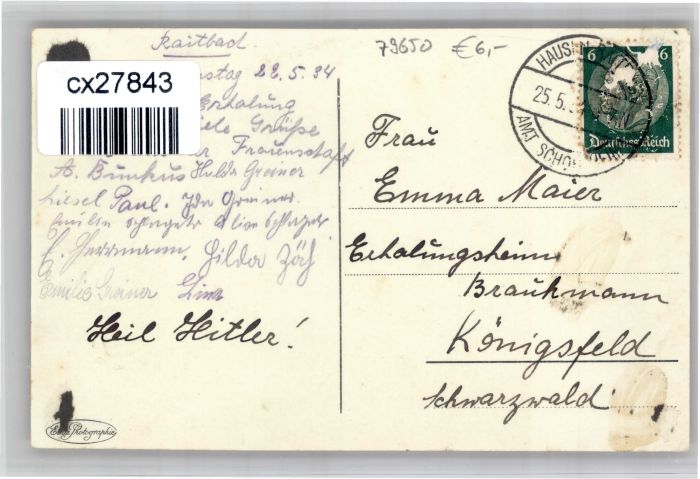 Raitbad
79650 €6,-
cx27843
22.5.34
Erholung
viele Grüße
der Frauenschaft
A. Bunkus Hulda Greiner
Liesel Paul. Ida Greiner
Schlageter
E. Herrmann, Hilda Zäh
Emilie Greiner Lina
Heil Hitler!
HAUSEN
25.5.
AMT SCHOPFHEIM
6 6
Deutsches Reich
Frau
Emma Maier
Erholungsheim
Braukmann
Königsfeld
Schwarzwald
Echte Photographie